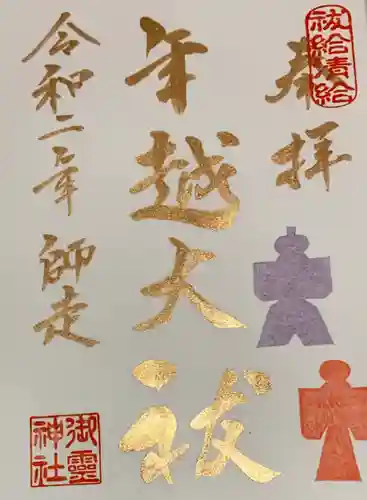 奉拝
祓給清給
年越大祓
令和二年 師走
御靈神社